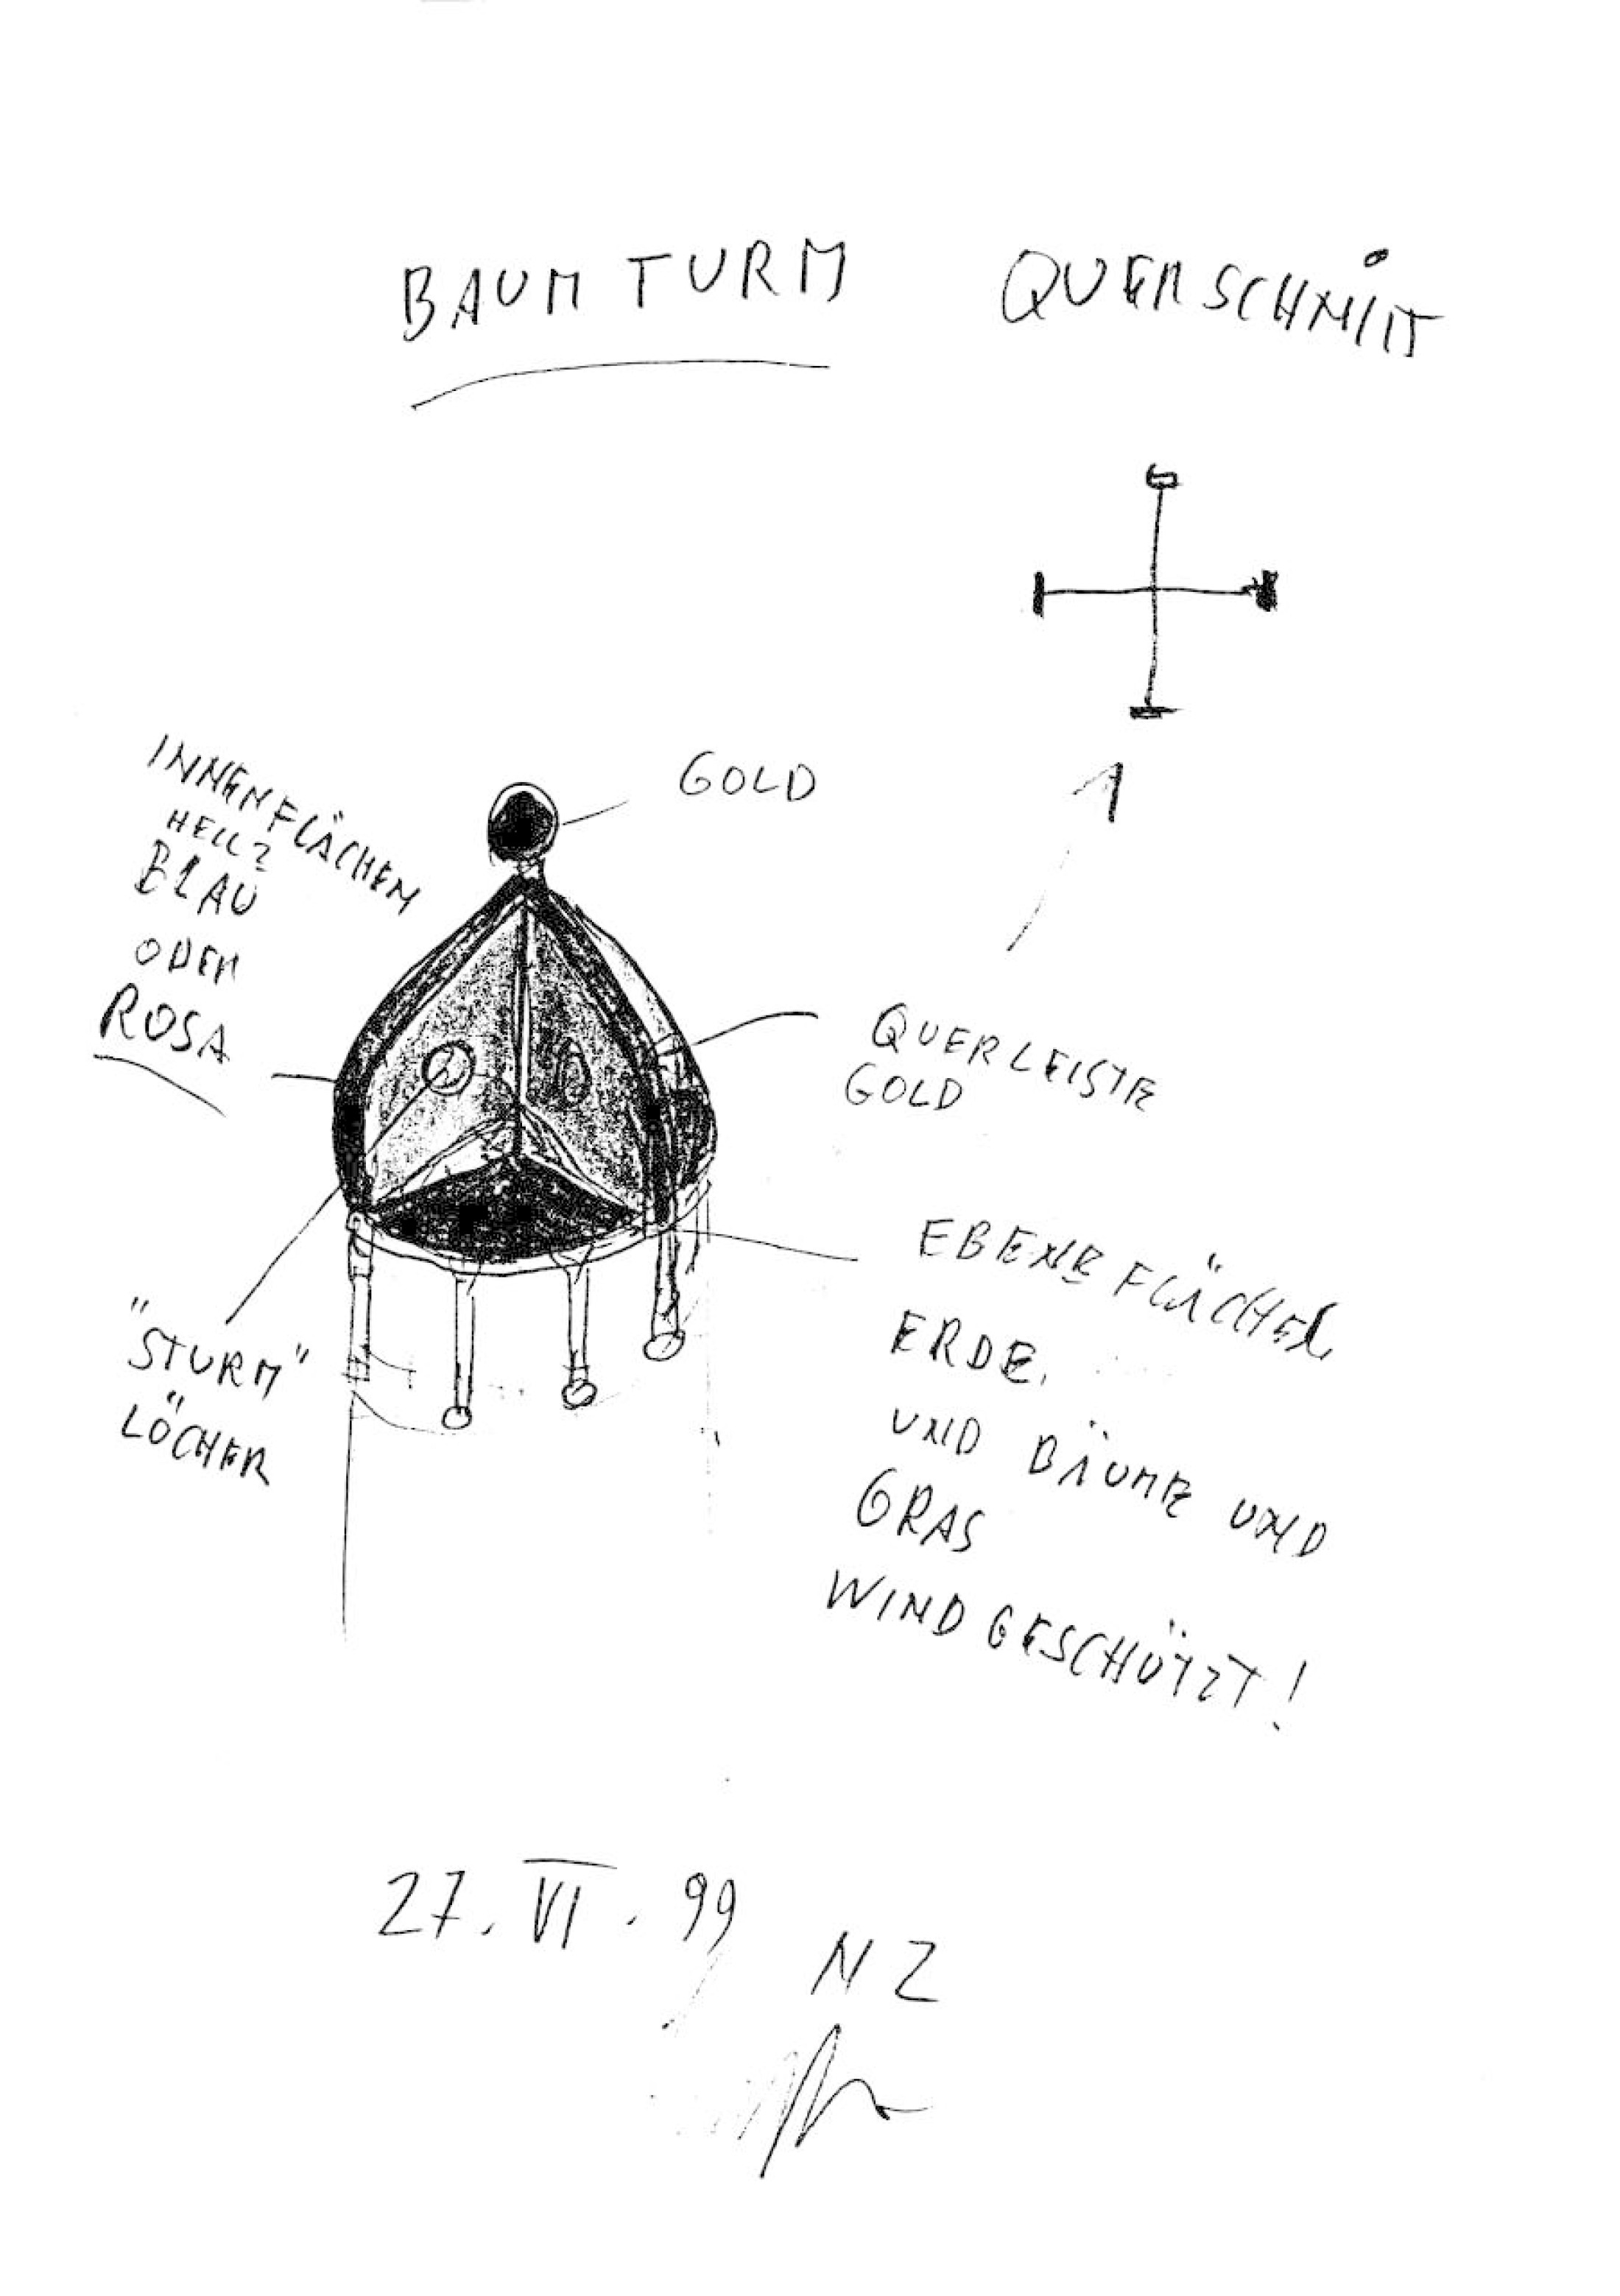 BAUM TURM
QUERSCHNITT
GOLD
INNENFLÄCHEN
HELL?
BLAU
ODER
ROSA
QUERLEISTE
GOLD
EBENE FLÄCHE
ERDE.
UND BÄUME UND
GRAS
WINDGESCHÜTZT!
"STURM"
LÖCHER
27. VI. 99
NZ